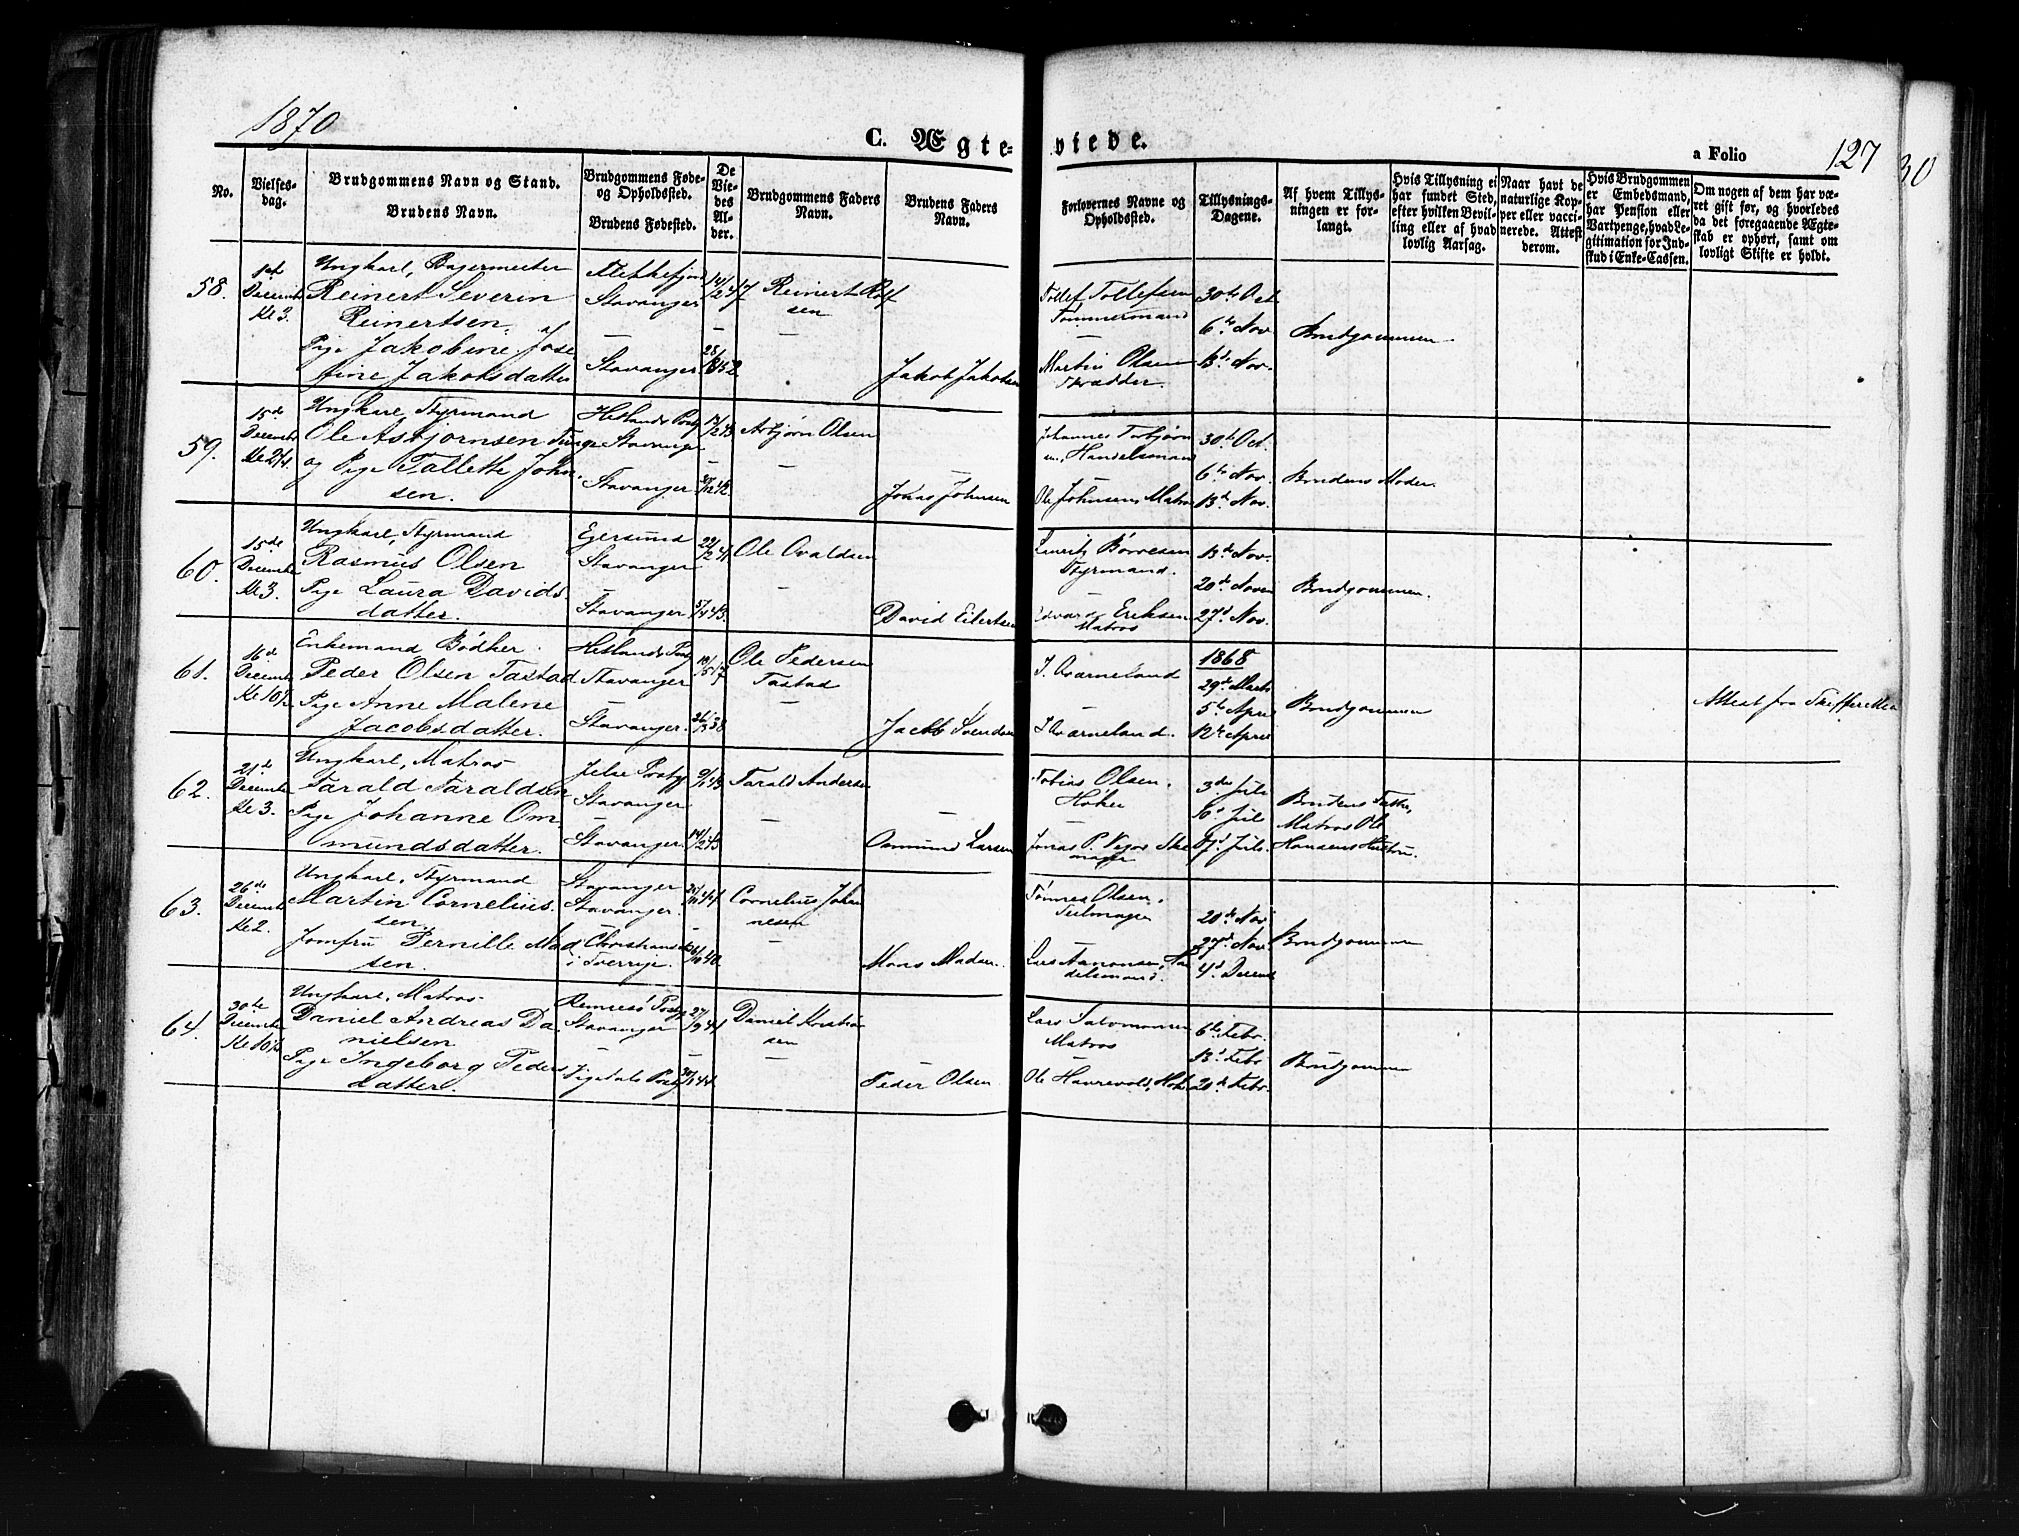 1870
C. Ægte-
viede.
a Folio
127
30
No.
Vielses-
dag.
Brudgommens Navn og Stand.
Brudens Navn.
Brudgommens Føde-
og Opholdssted.
Brudens Fødested.
De
Vie-
des
Al-
der.
Brudgommens Faders
Navn.
Brudens Faders
Navn.
Forlovernes Navne og
Opholdssted.
Tillysnings-
Dagene.
Af hvem Tillys-
ningen er for-
langt.
Hvis Tillysning ei
har fundet Sted,
efter hvilken Bevil-
ling eller af hvad
lovlig Aarsag.
Naar havt de
naturlige Kop-
per eller vacci-
nerede. Attest
derom.
Hvis Brudgommen
er Embedsmand,
har Pension eller
Vartpenge, hvad Le-
gitimation for Ind-
skud i Enke-Cassen.
Om nogen af dem har væ-
ret gift før, og hvorledes
da det foregaaende Ægte-
skab er ophørt, samt om
lovligt Skifte er holdt.
58.
1st
December
Kl 3.
Ungkarl, Bagermester
Reinert Severin
Reinertsen.
Pige Jakobine Jose
fine Jakobsdatter
Flekkefjord
Stavanger
Stavanger
Reinert Rolf
sen
Jakob Jakobsen
Tollef Tollefsen
Tømmermand
Martin Olsen
Skrædder.
30te Oct
6te Nov
13de Nov.
Brudgommen
59.
15de
December
Kl 2 1/2.
Ungkarl, Styrmand
Ole Asbjørnsen Tunge
og Pige Tallette John
sen.
Hetlands Prstg
Stavanger
Stavanger
Asbjørn Olsen
Jonas Johnsen
Johannes Torbjørn
sen, Handelsmand
Ole Johnsen, Matros
30te Oct.
6te Nov.
13de Nov.
Brudens Moder.
60.
15de
December
Kl 3.
Ungkarl, Styrmand
Rasmus Olsen
Pige Laura Davids
datter.
Egersund
Stavanger
Stavanger
Ole Ovaldsen
David Eilertsen
Lauritz Børresen
Styrmand.
Edvard Eriksen
Matros
13de Nov.
20de Novem
27d Nov.
Brudgommen.
61.
16de
December
Kl 10 1/2
Enkemand Bødker
Peder Olsen Tastad
Pige Anne Malene
Jacobsdatter.
Hetlands Prstg
Stavanger
Stavanger.
Ole Pedersen
Tastad
Jacob Svendsen
J. Qvarneland
J Qvarneland.
1868
29de Marts
5te April
12te April
Brudgommen
Attest fra Skifteretten
62.
21de
December
Kl 3.
Ungkarl, Matros
Tarald Taraldsen
Pige Johanne Om
mundsdatter.
Jelse Prstg
Stavanger
Stavanger.
Tarald Andersen
Ommund Larsen
Tobias Olsen.
Høker
3die Juli
10d Juli
17d Juli.
Brudens Fader,
Matros Ole
Hansens Hustru.
63.
26de
December
Kl 2.
Ungkarl, Styrmand
Martin Cornelius
sen.
Jomfru Pernille Mad
sen.
Stavanger
Stavanger.
Christianstad
i Sverrige.
Cornelius Johan
nesen
Mons Madsen.
Tønnes Olsen.
Seilmager
Lars Aanonsen, Han
delsmand.
20de Nov
27de Nov
4d Decemb
Brudgommen
64.
30te
December
Kl 10 1/2
Ungkarl, Matros
Daniel Andreas Da
nielsen
Pige Ingeborg Peders
datter.
Rennesø Prstg
Stavanger
Sigdals Prstg
Daniel Kristian
sen
Peder Olsen
Lars Salomonsen
Matros
Ole Haurevold, Høker
6te Febr.
13d Febr
20de Febr.
Brudgommen